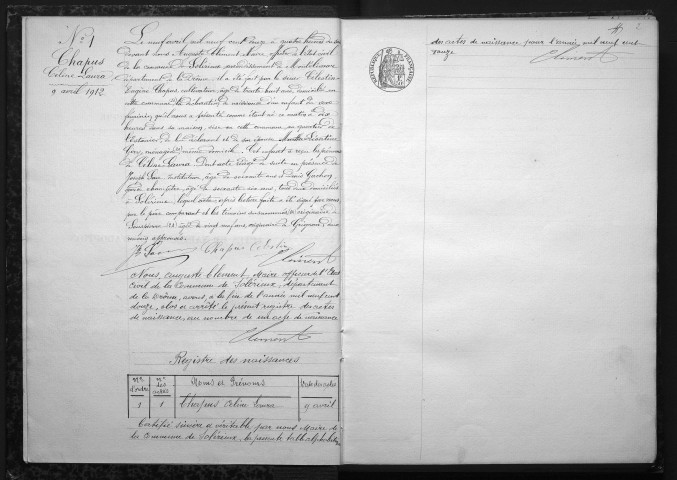 N° 1
Chapus
Céline Laura
9 avril 1912
Le neuf avril mil neuf cent douze à quatre heures du soir
devant nous Auguste Clément Maire officier de l'état civil
de la commune de Solérieux, arrondissement de Montélimar
département de la Drôme, il a été fait par le sieur Célestin
Eugène Chapus cultivateur âgé de trente huit ans domicilié en
cette commune la déclaration de naissance d'un enfant du sexe
féminin, qu'il nous a présenté comme étant né ce matin à dix
heures dans sa maison, sise en cette commune au quartier de
de lui déclarant et de son épouse Marthe
ménagère même domicile. Cet enfant a reçu les prénoms
de Céline Laura. Dont acte rédigé de suite en présence de
Joseph instituteur, âgé de soixante ans et Denis
garde champêtre, âgé de soixante six ans, tous deux domiciliés
à Solérieux, lequel acte, après lecture faite a été signé par nous,
par le père comparant et les témoins susnommés
âgée de vingt neuf ans, originaire de Grignan
approuvés.
Chapus Célestin
Clément
Nous, Auguste Clément, Maire officier de l'Etat
Civil de la Commune de Solérieux, département
de la Drôme, avons, à la fin de l'année mil neuf cent
douze, clos et arrêté le présent registre des actes
de naissance, au nombre de un acte de naissance
Clément
Registre des naissances
Nos d'ordre Nos des actes Noms et Prénoms Date des actes
1 1 Chapus Céline Laura 9 avril
Certifié sincère et véritable par nous Maire de
la Commune de Solérieux, la présente table alphabétique
2
des actes de naissance pour l'année mil neuf cent
douze
Clément
RÉPUBLIQUE FRANÇAISE